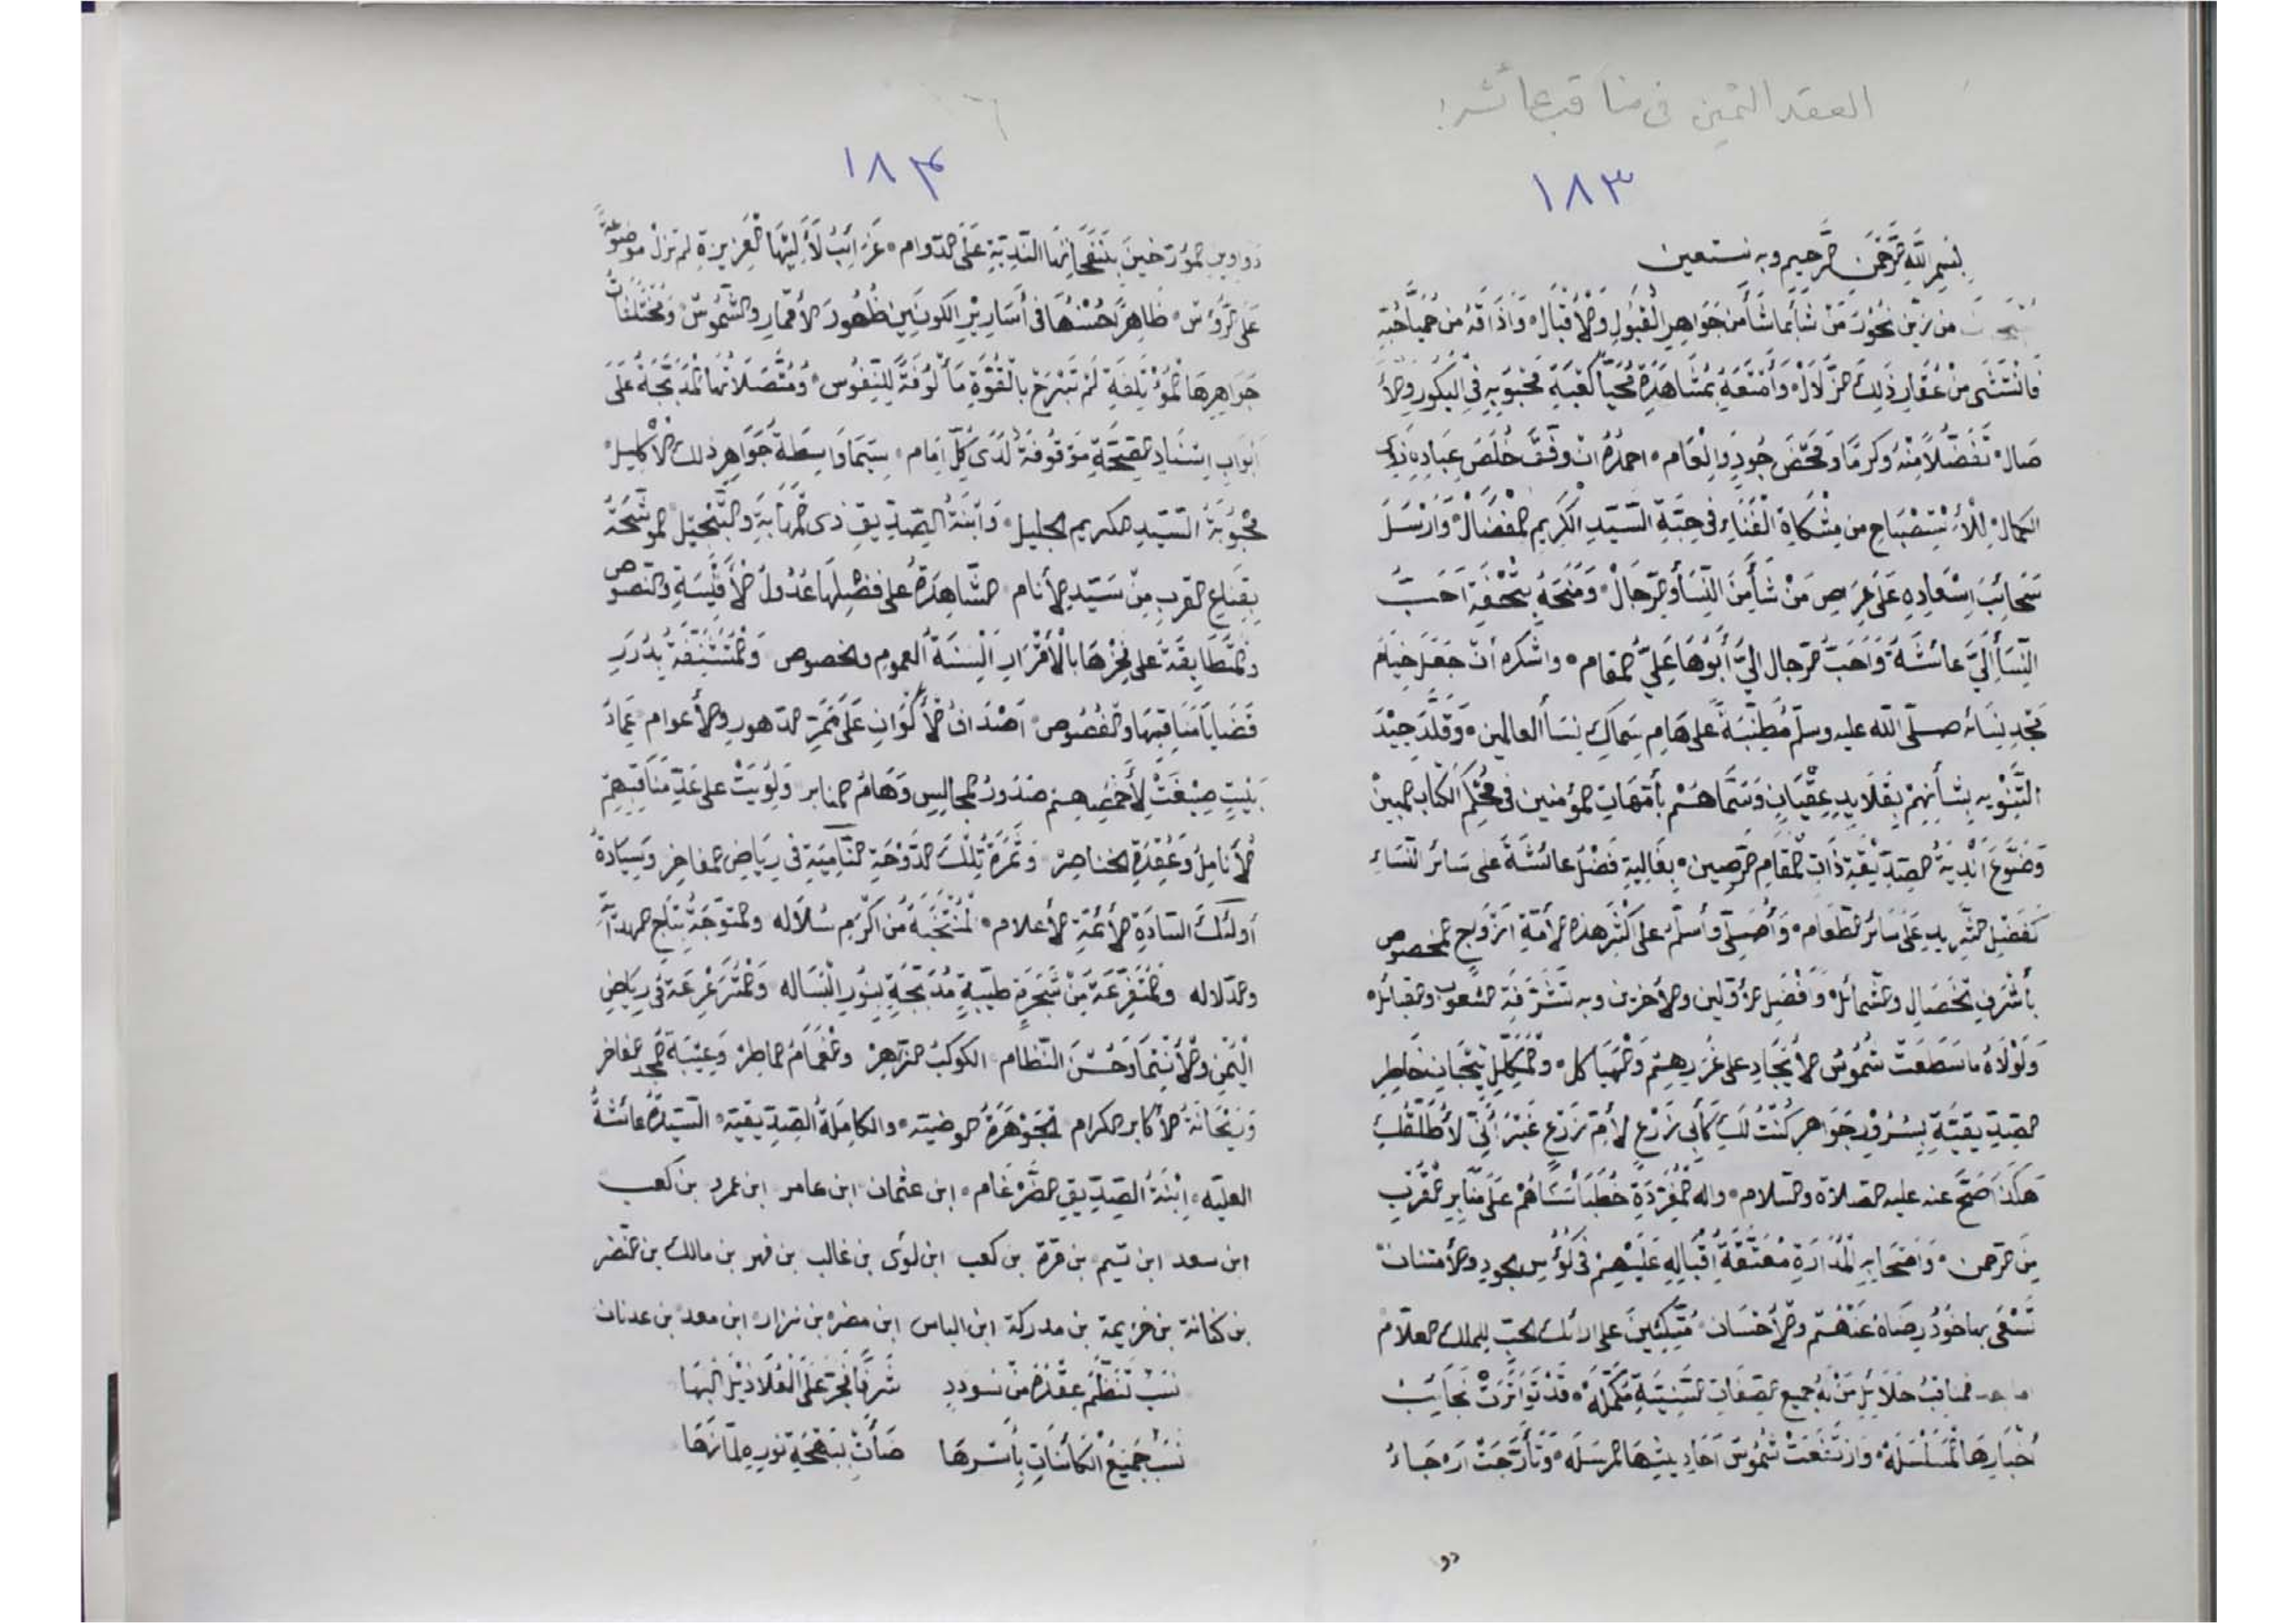 العقد الثمين في مناقب عائشة
١٨٣
بسم الله الرحمن الرحيم وبه نستعين
من زين نحور من شأ بما شأ من جواهر القبول والأقبال وأذاقه من حميا حبه
فانتشى من عقار ذلك الزلال وأمتعه بمشاهدة محيا كعبة محبوبه في البكور والأ
صال تفضلا منه وكرما ومحض جود وانعام احمده ان وفق خلص عباده ذوي
الكمال للأستصباح من مشكاة الفناء في حبة السيد الكريم المفضال وارسل
سحائب اسعاده على عراص من شأ من النسأ والرجال ومنحه بتحفة احب
النسأ الي عائشة واحب الرجال الي أبوها علي المقام واشكره أن جعل خيام
مجد نسائه صلى الله عليه وسلم مطنبة على هام سماك نسأ العالمين وقلد جيد
التنويه بشأنهم بقلايد عقيان وسماهم بأمهات المؤمنين في محكم الكتاب المبين
وضوع اندية الصديقية ذات المقام الرصين بغالية فضل عائشة على سائر النساء
كفضل الثريد على سائر الطعام وأصلي وأسلم على كثر هذه الأمة ازواج المخصوص
بأشرف الخصال والشمائل وافضل الأولين والأخرين وبه تشرفت الشعوب والقبائل
ولولاه ما سطعت شموس الأيجاد على غررهم والهياكل والمكلل تيجان خاطر
الصديقية بسرور جواهر كنت لك كأبي زرع لأم زرع غير أني لا أطلقك
هكذا صح عنه عليه الصلاة والسلام واله المغردة خطبأ سناهم على منابر القرب
من الرحمن واصحابه المدارة معتقة اقباله عليهم في كؤس الجود والأمتنان
تسقى بها خود رضاه عنهم والأحسان متكئين على ارائك الحب للملك العلام
اما بعد فمناقب حلائل من به جميع الصفات السنية مكمله قد تواترت نجائب
أخبارها المسلسله وارتفعت شموس احاديثها المرسله وتأرجت ارجاء
دوا
١٨٤
دواوين المؤرخين بنفحاتها الندية على الدوام غرائب لأليها الغزيرة لم تزل موضوعة
على الرؤس ظاهرا حسنها في أسارير الكونين ظهور الأقمار والشموس ومختلفات
جواهرها المؤتلفة لم تبرح بالقوة مألوفة للنفوس ومتصلاتها المدبجة على
ابواب اسناد الصحة موقوفة لدى كل امام سيما واسطة جواهر ذلك الأكليل
محبوبة السيد الكريم الجليل وابنة الصديق ذي المهابة والتبجيل الموشحة
بقناع القرب من سيد الأنام الشاهدة على فضلها عدول الأقيسة والنصوص
والمتطابقة على فخرها بالأقرار السنة العموم والخصوص والمتشنفة بدرر
قضايا مناقبها والفصوص اصداف الأكوان على ممر الدهور والأعوام عماد
بيت صيغت لأخمصهم صدور المجالس وهام المنابر ولويت على عد مناقبهم
الأنامل وعقدة الخناصر وثمرة تلك الدوحة النامية في رياض المفاخر وسيادة
أولئك السادة الأئمة الأعلام المنتخبة من اكرم سلاله والمتوجة بتاج المهابة
والدلاله والمتفرعة من شجرة طيبة مدبجة بنور الرساله والمترعرعة في رياض
اليمن والأنتما وحسن النظام الكوكب الزاهر والغمام الماطر وعيبة المجد المفاخر
وريحانة الأكابر الكرام الجوهرة الوضيه والكاملة الصديقية السيدة عائشة
العليه ابنة الصديق الضرغام ابن عثمان ابن عامر ابن عمرو بن كعب
ابن سعد ابن تيم بن مرة بن كعب ابن لوى بن غالب بن فهر بن مالك بن النضر
بن كنانة بن خزيمة بن مدركة ابن الياس ابن مضر بن نزار ابن معد بن عدنان
نسب تنظم عقده من سودد شرفا تجر على العلا ذيل البها
نسب جميع الكائنات بأسرها ضأت ببهجة نوره لما زها